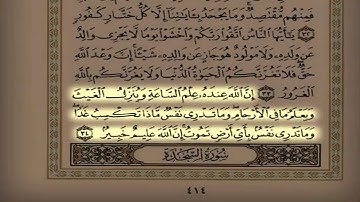 فَمِنْهُم مُّقْتَصِدٌ وَمَا يَجْحَدُ بِـَٔايَـٰتِنَآ إِلَّا كُلُّ خَتَّارٍ كَفُورٍ
٣٢ يَـٰٓأَيُّهَا ٱلنَّاسُ ٱتَّقُوا۟ رَبَّكُمْ وَٱخْشَوْا۟ يَوْمًا لَّا يَجْزِى وَالِدٌ
عَن وَلَدِهِۦ وَلَا مَوْلُودٌ هُوَ جَازٍ عَن وَالِدِهِۦ شَيْـًٔا إِنَّ وَعْدَ ٱللَّهِ
حَقٌّ فَلَا تَغُرَّنَّكُمُ ٱلْحَيَوٰةُ ٱلدُّنْيَا وَلَا يَغُرَّنَّكُم بِٱللَّهِ
ٱلْغَرُورُ ٣٣ إِنَّ ٱللَّهَ عِندَهُۥ عِلْمُ ٱلسَّاعَةِ وَيُنَزِّلُ ٱلْغَيْثَ
وَيَعْلَمُ مَا فِى ٱلْأَرْحَامِ وَمَا تَدْرِى نَفْسٌ مَّاذَا تَكْسِبُ غَدًا
وَمَا تَدْرِى نَفْسٌۢ بِأَىِّ أَرْضٍ تَمُوتُ إِنَّ ٱللَّهَ عَلِيمٌ خَبِيرٌۢ ٣٤
سُورَةُ السَّجْدَةِ
٤١٤